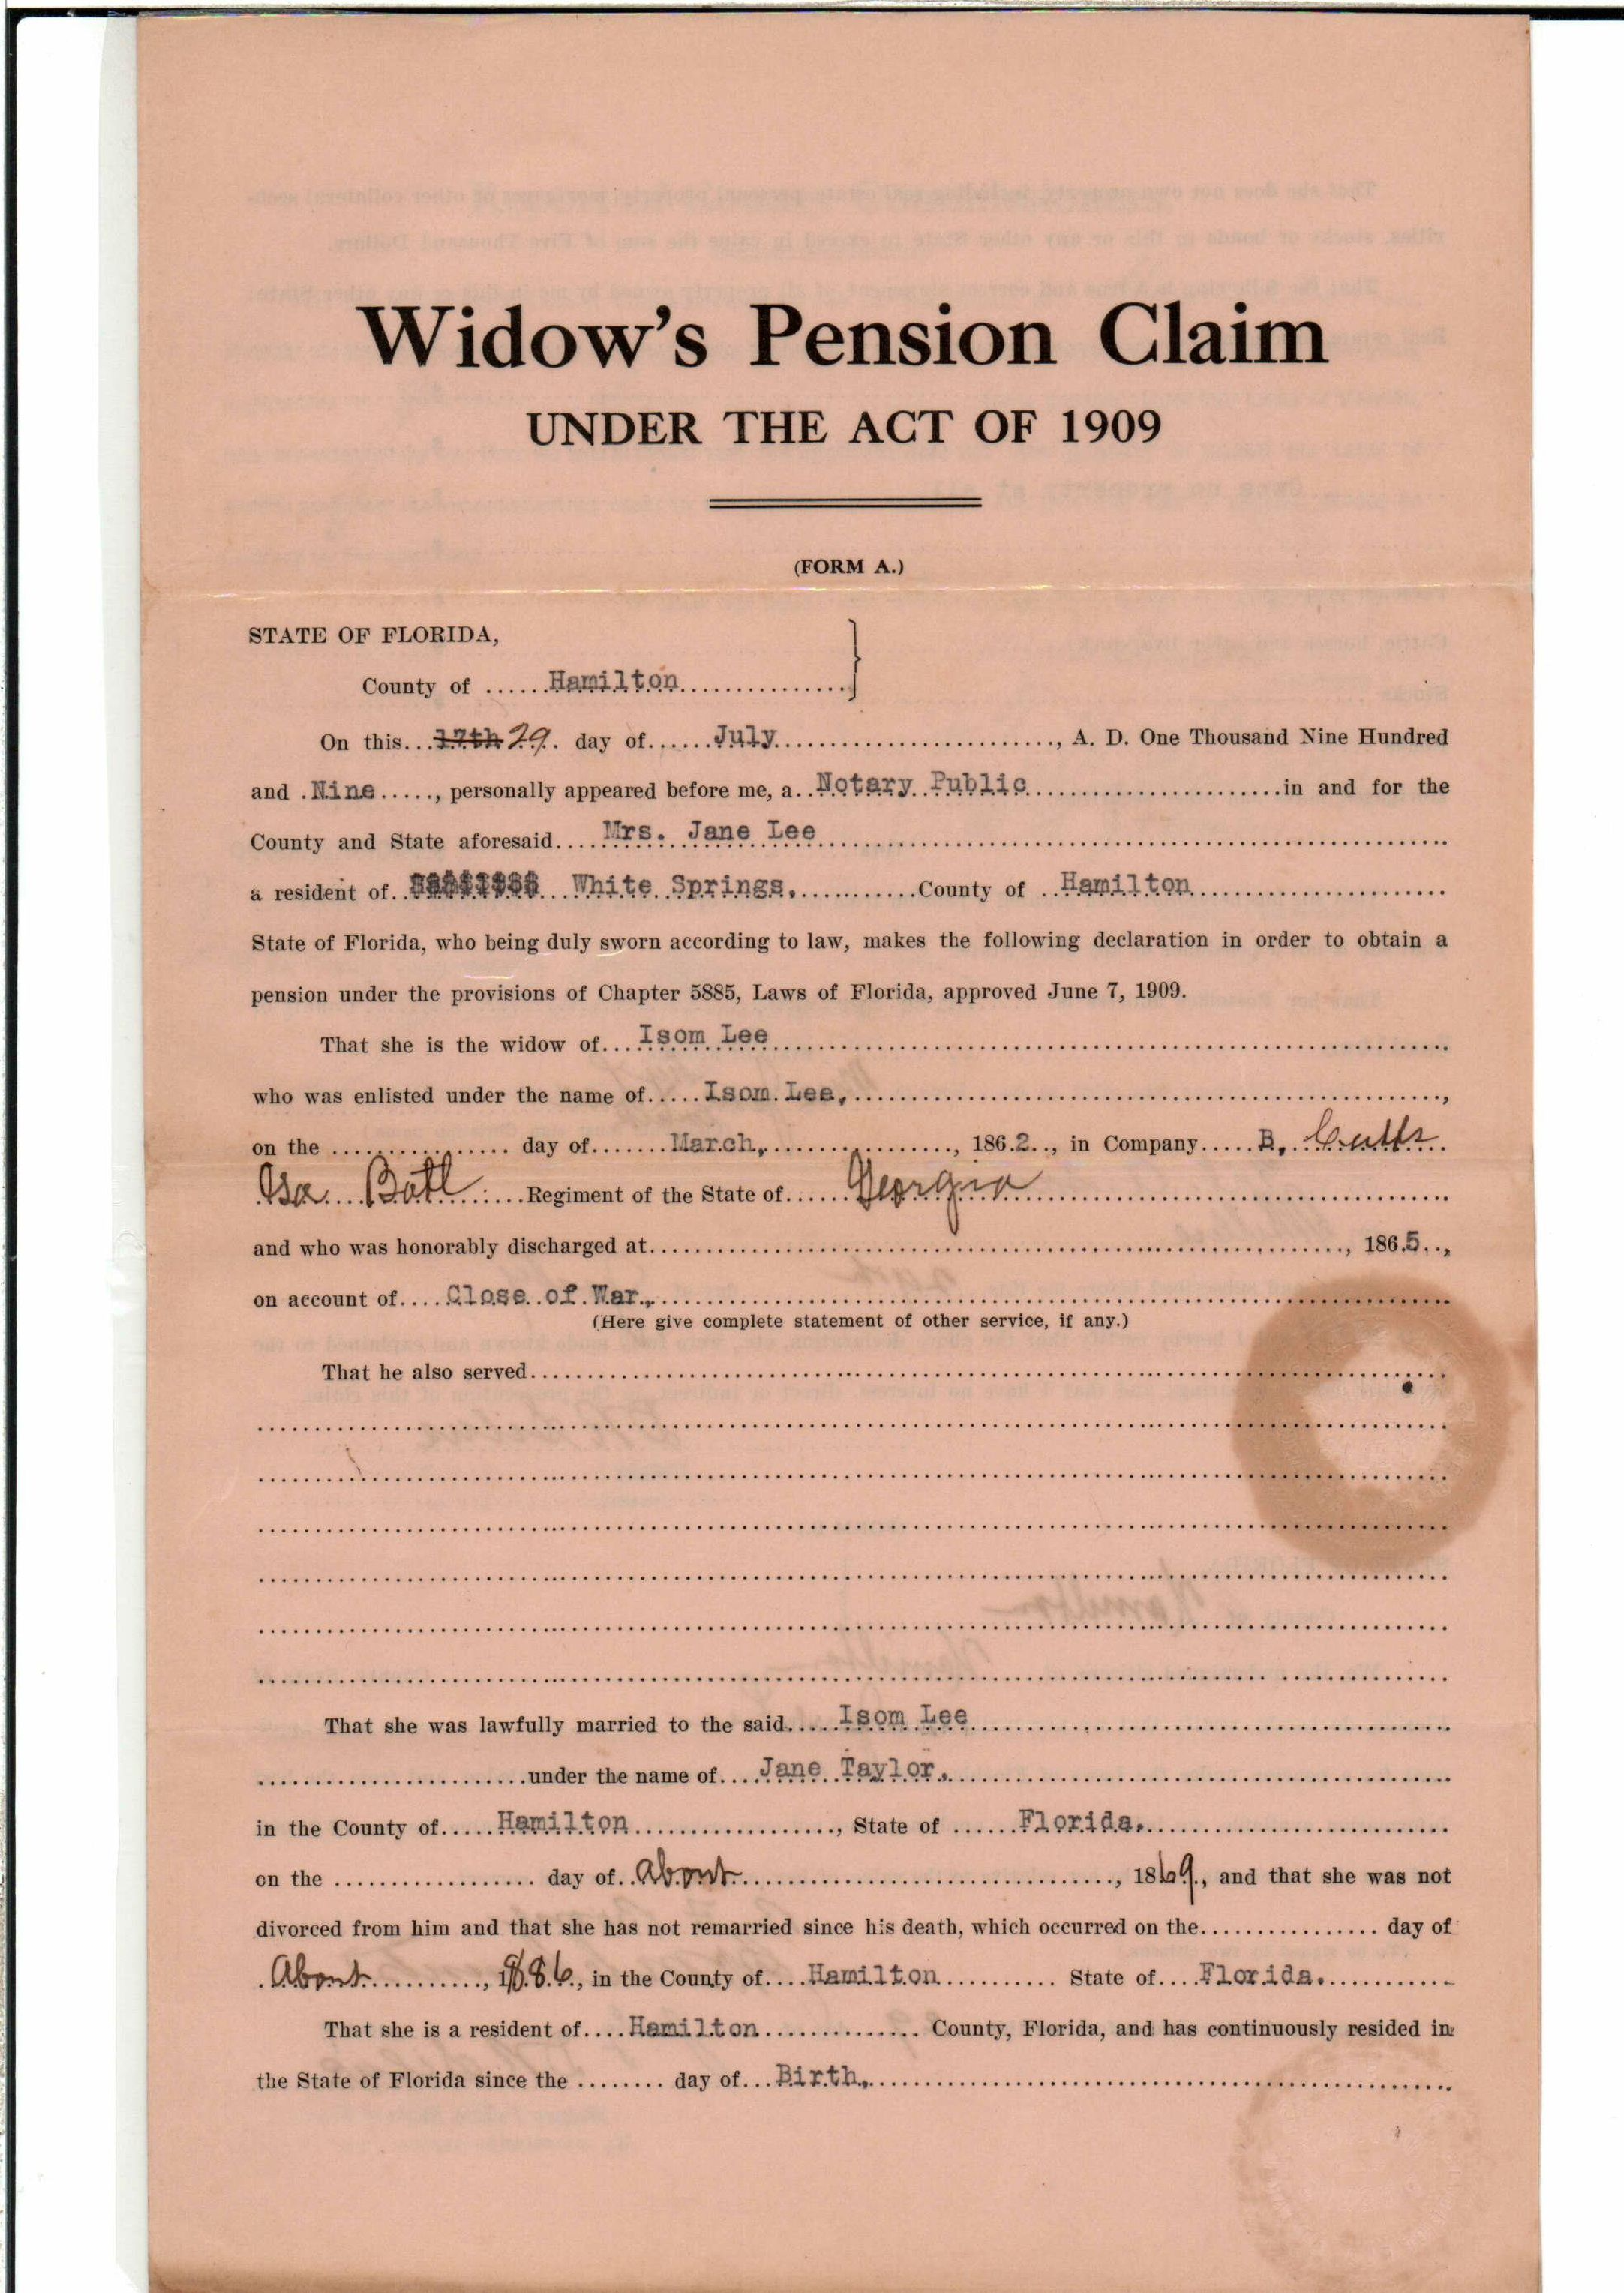 Widow's Pension Claim
UNDER THE ACT OF 1909
(FORM A.)
STATE OF FLORIDA,
County of ......Hamilton................
On this...17th 29. day of......July............................, A. D. One Thousand Nine Hundred
and .Nine....., personally appeared before me, a..Notary Public.........................in and for the
County and State aforesaid....Mrs. Jane Lee
a resident of.. White Springs.............County of ..Hamilton
State of Florida, who being duly sworn according to law, makes the following declaration in order to obtain a
pension under the provisions of Chapter 5885, Laws of Florida, approved June 7, 1909.
That she is the widow of....Isom Lee
who was enlisted under the name of.....Isom Lee,......,
on the .................. day of.......March,..................., 186.2.., in Company.....B. Cutts
Batl.......Regiment of the State of......Georgia
and who was honorably discharged at......, 186.5..,
on account of....Close of War.,
(Here give complete statement of other service, if any.)
That he also served......
That she was lawfully married to the said.....Isom Lee
...........................under the name of....Jane Taylor,
in the County of.....Hamilton...................., State of ......Florida.
on the .................. day of..About..................................., 1869., and that she was not
divorced from him and that she has not remarried since his death, which occurred on the................ day of
.About..........., 1886., in the County of....Hamilton........... State of....Florida.
That she is a resident of....Hamilton.............. County, Florida, and has continuously resided in
the State of Florida since the ........ day of...Birth,